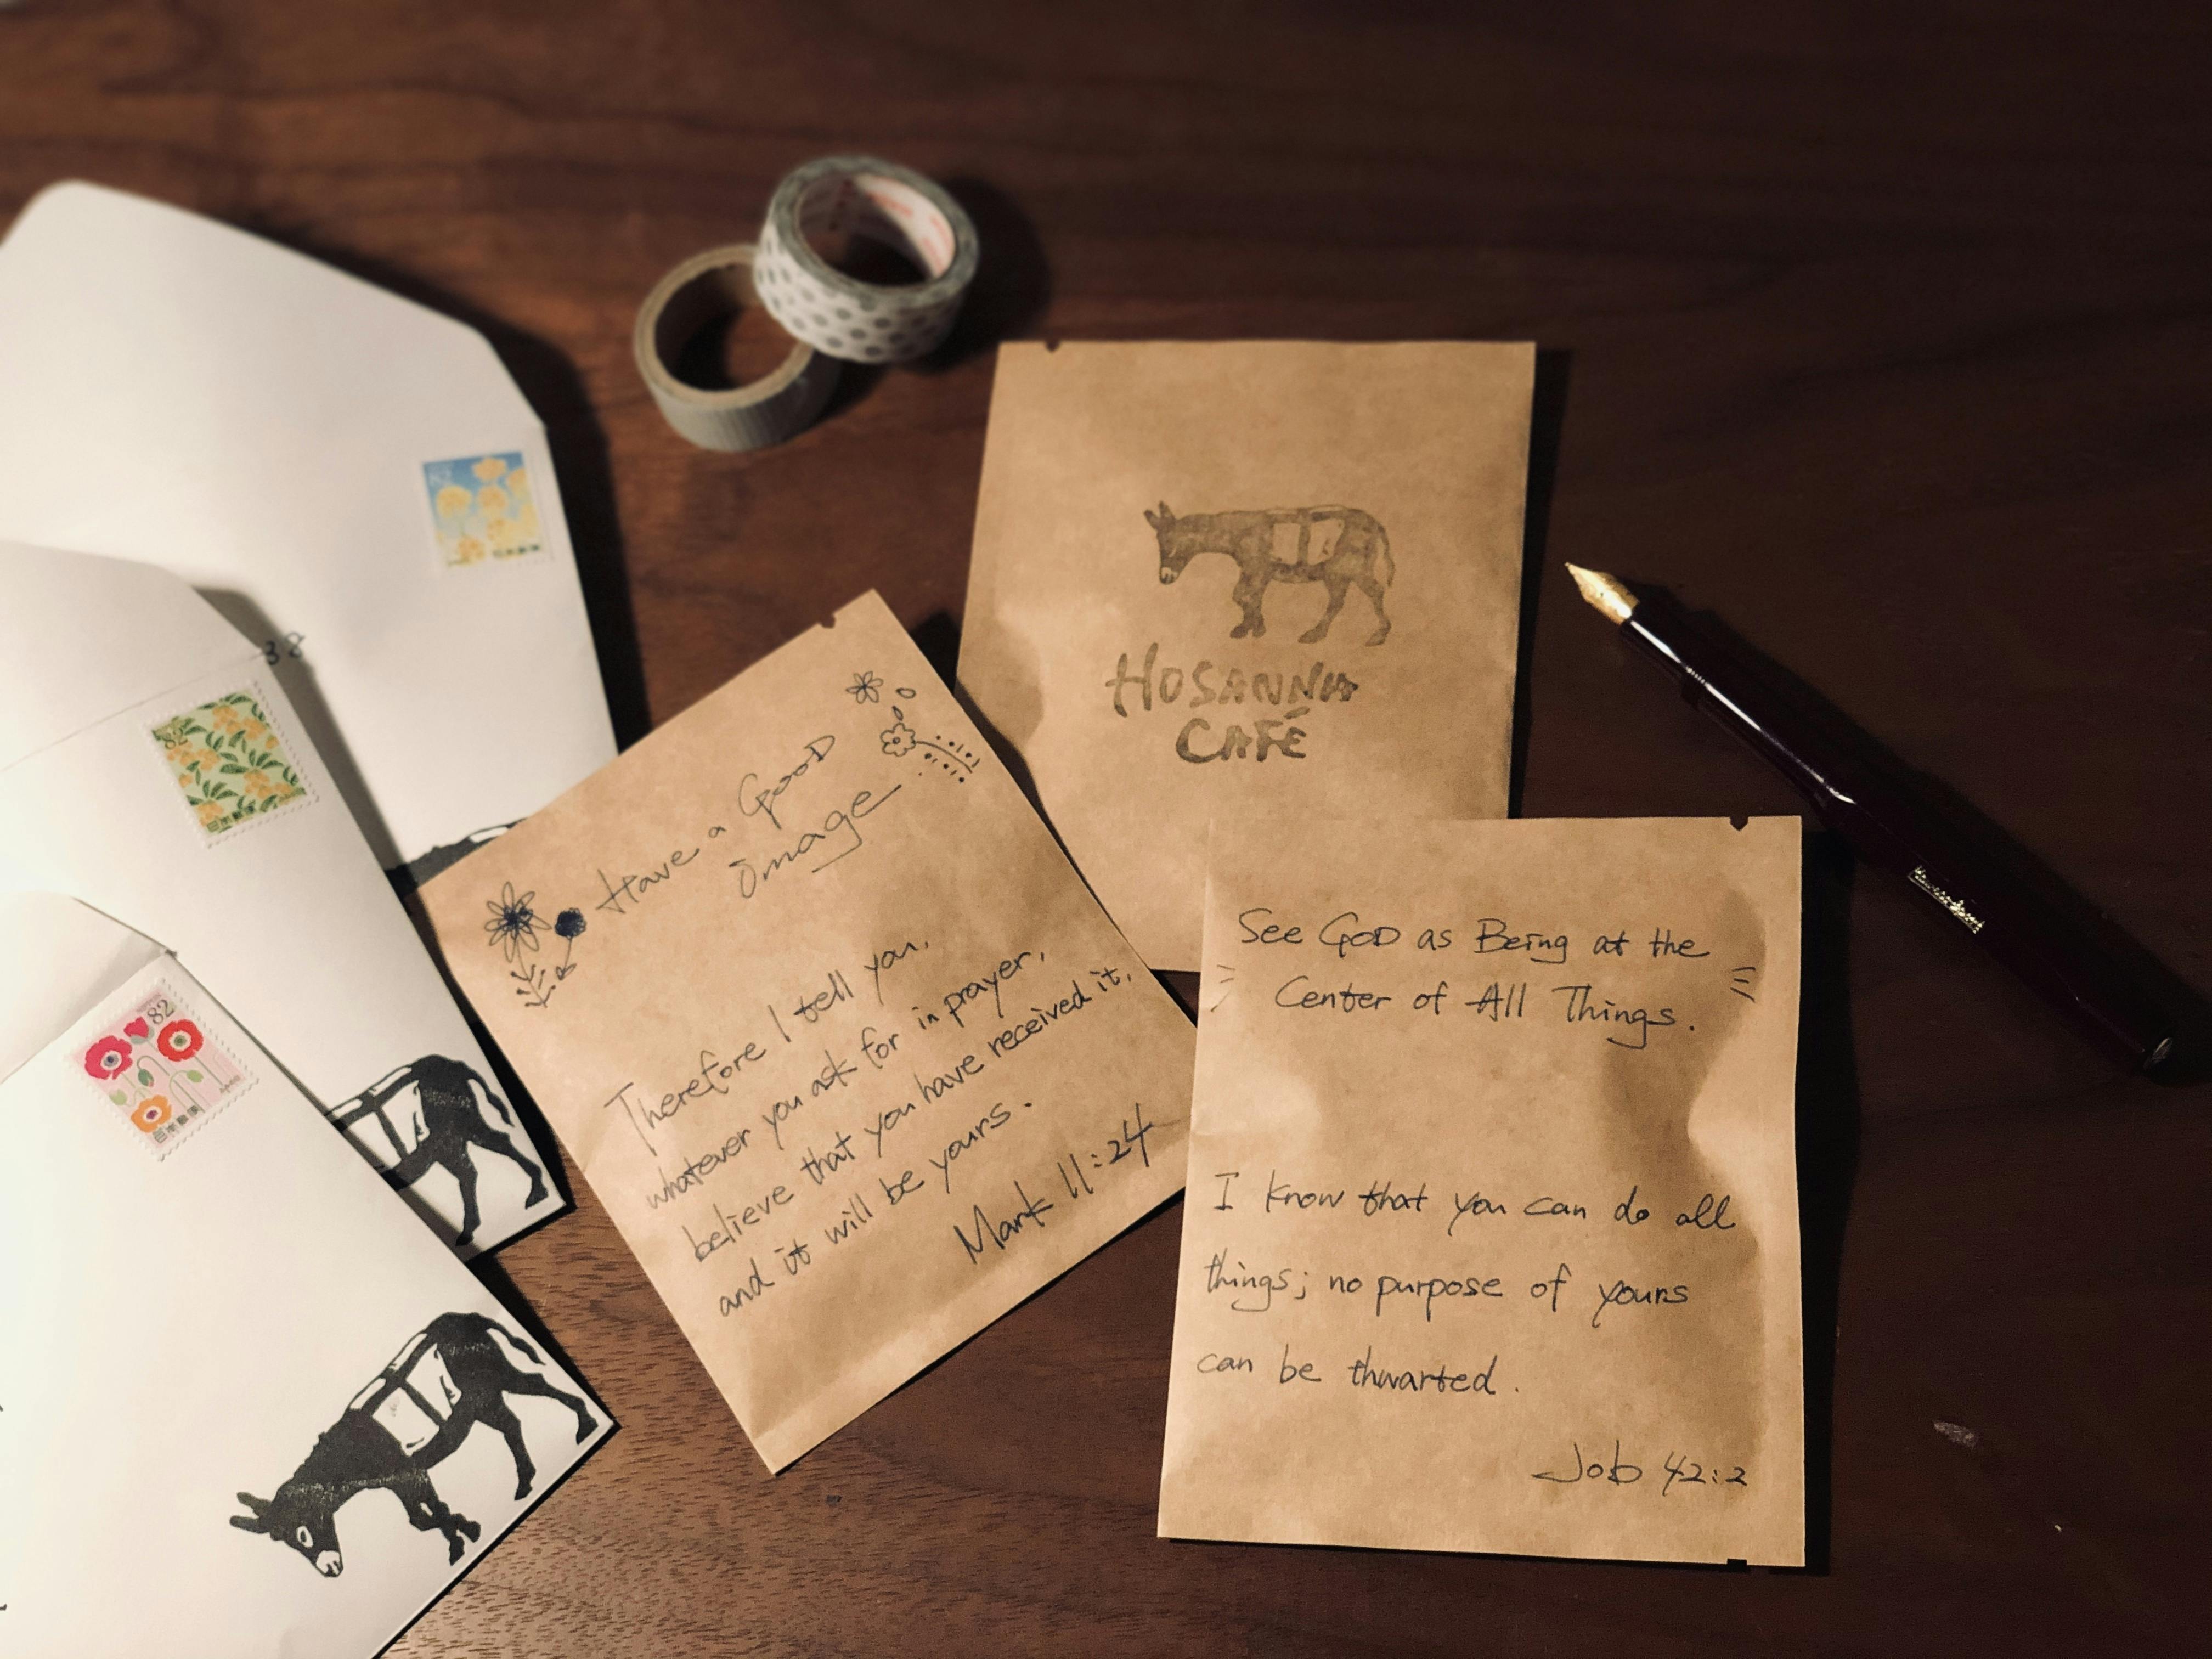 HOSANNA
CAFÉ
Have a GOOD
image
Therefore I tell you,
whatever you ask for in prayer,
believe that you have received it,
and it will be yours.
Mark 11:24
See GOD as Being at the
Center of All Things.
I know that you can do all
things; no purpose of yours
can be thwarted.
Job 42:2
82
38
82
日本郵便
82
日本郵便